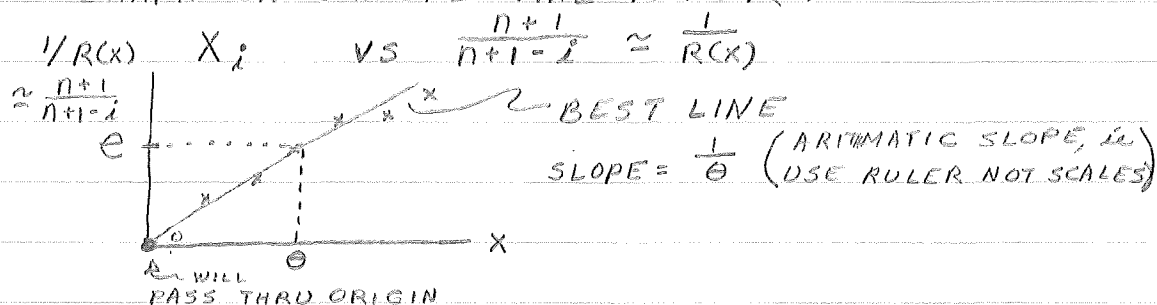 1/R(X) Xi VS n+1/n+1-i ≃ 1/R(X)
≃ n+1/n+1-i
BEST LINE
e
SLOPE = 1/Θ (ARITHMATIC SLOPE, ie
USE RULER NOT SCALES)
X
Θ
WILL
PASS THRU ORIGIN